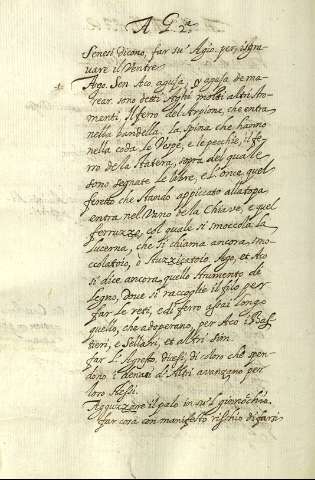 A G. 2.ª
Senesi dicono, far su' Agio per isgra-
uare il Ventre
* Ago. Sen Aco. agusa, et agusa de ma-
rear. sono detti Aghi molti altri stro-
menti, Il ferro del Arpione, che entra
nella bandella. la spina che hanno
nella coda le Vespe, e le pecchie, il fer-
ro della Statera, sopra del quale
sono segnate le libre, e l'once, quel
feretto che stando appiccato alla toppa
entra nel Vano dela Chiaue, e quel
ferruzzo, col quale si smoccola la
lucerna, che si chiama ancora smo-
ccolatoio, o stuzzicatoio. Ago, et Aco
si dice ancora quello strumento di
legno, doue si raccoglie il filo per
far le reti, e di ferro assai longo
quello, che adoperano, per Aco i Bas-
tieri, e Sellari, et altri sim.
far L'Agresto, dicesi, di coloro che spen-
dono i denari d'Altri auanzano per
loro stessi.
Aguzzarsi il palo in su'l ginocchio,
far cosa con manifesto rischio di farsi